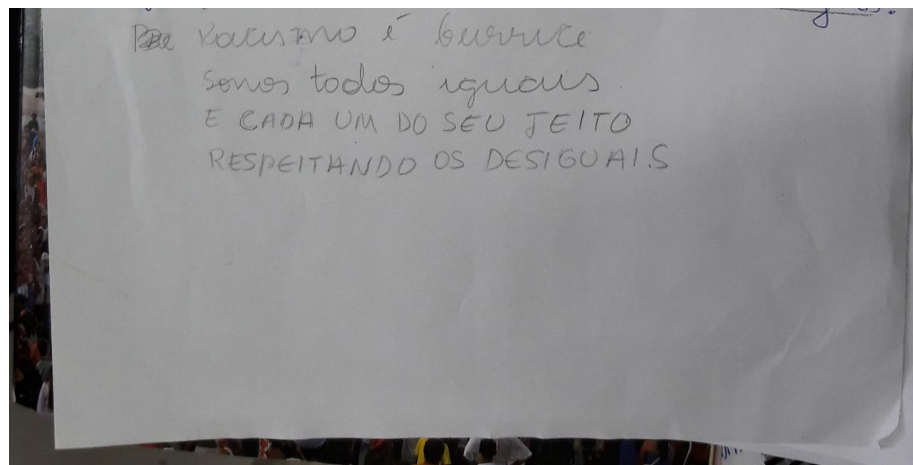 Racismo é burrice
Somos todos iguais
E CADA UM DO SEU JEITO
RESPEITANDO OS DESIGUAIS